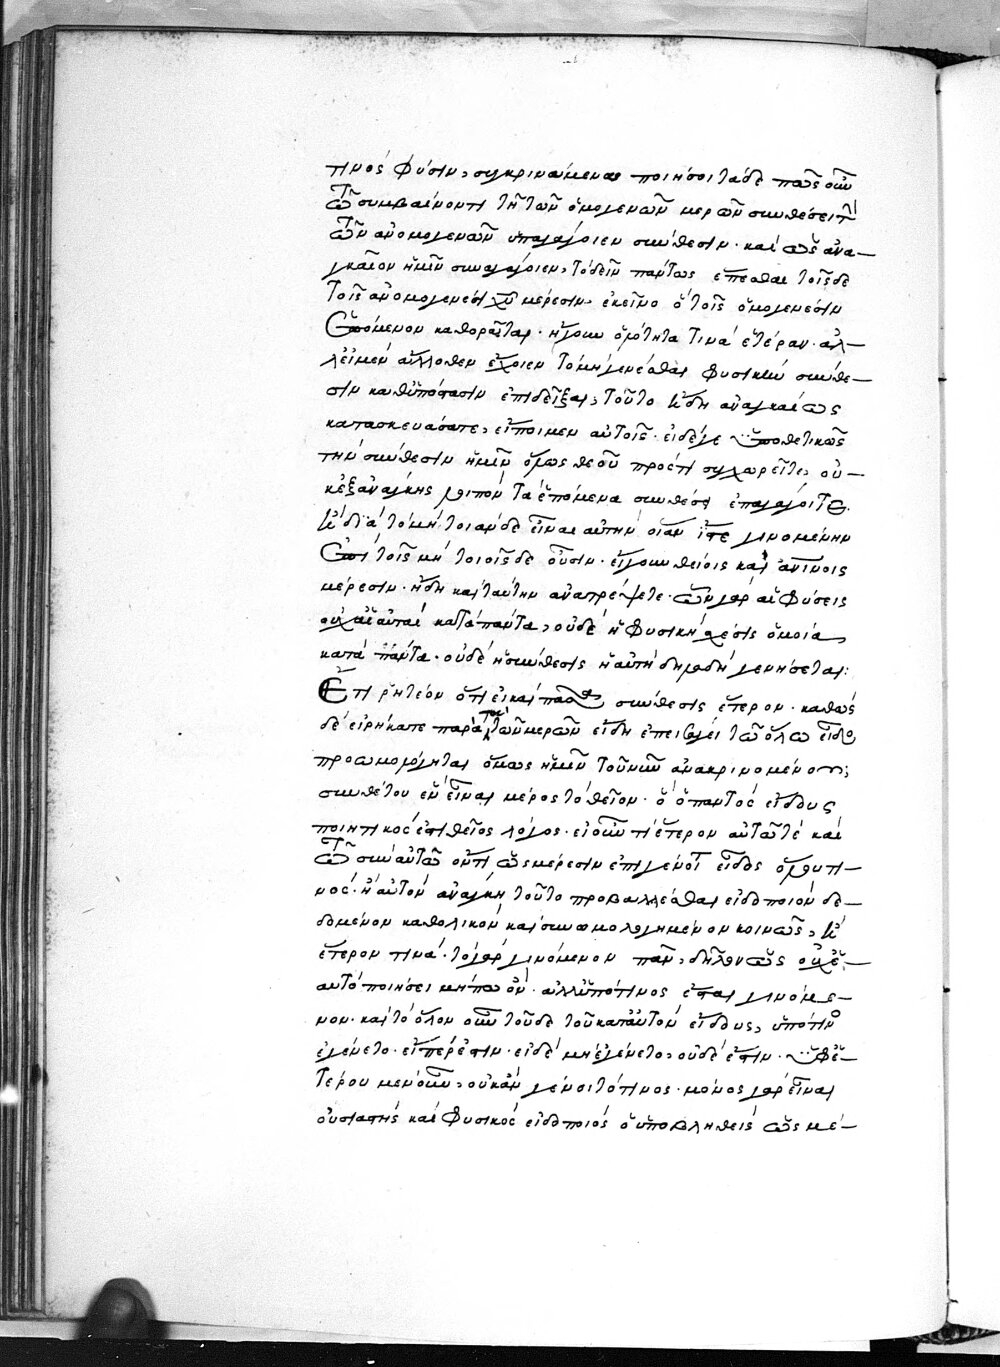 τινος φύσιν, συγκρινώμενα ποιήσοι τάδε πῶς οὖν
τῷ συμβαίνοντι τῇ τῶν ὁμογενῶν μερῶν συνθέσει τὴν
τῶν ἀνομογενῶν ὑπαγάγοιεν σύνθεσιν· καὶ ὡς ἀνα-
γκαῖον ἡμῖν συναγάγοιεν, τὸ δεῖν πάντως ἕπεσθαι τοῖσδε
τοῖς ἀνομογενέσι χῦ μέρεσιν, ἐκεῖνο ὃ τοῖς ὁμογενέσιν
ἑπόμενον καθορᾶται· ἤγουν ὁλότητα τινὰ ἑτέραν· ἀλ-
λ' εἰ μὲν ἄλλοθεν ἔχοιεν τὸ μὴ γενέσθαι φυσικὴν σύνθε-
σιν καθ' ὑπόστασιν ἐπιδεῖξαι, τοῦτο καὶ δὴ ἀναγκαίως
κατασκευάσατε, εἴποιμεν αὐτοῖς· εἰ δέ γε ὑποθετικῶς
τὴν σύνθεσιν ἡμῖν ὅμως θεοῦ προέτι συγχωρεῖτε, οὐ-
κ ἐξ ἀνάγκης λοιπὸν τὰ ἑπόμενα συνθέσει ἐπαγάγοιτε.
καὶ διὰ τὸ μὴ τοιάνδε εἶναι αὐτὴν οἵαν ἴστε γινομένην
ἐπὶ τοῖς μὴ τοιοῖσδε οὖσιν· εἴγουν θείοις καὶ κτίνοις
μέρεσιν· ἤδη καὶ ταύτην ἀνατρέψετε· ὧν γὰρ αἱ φύσεις
οὐχ αἱ αὐταὶ κατὰ πάντα, οὐδὲ ἡ φυσικὴ χέσις ὁμοία
κατὰ πάντα· οὐδὲ ἡ σύνθεσις ἡ αὐτὴ δηλαδὴ γενήσεται:
Ἔτι ῥητέον ὅτι εἰ καὶ πᾶσα σύνθεσις ἕτερον· καθὼς
δὲ εἰρήκατε παρὰ τὸ τῶν μερῶν εἴδη ἐπεισάγει τῷ ὅλῳ εἶδος
προωμολόγηται ὅμως ἡμῖν τοῦ νῦν ἀνακρινομένου
συνθέτου ἓν εἶναι μέρος τὸ θεῖον· ὃ ὁ παντὸς εἴδους
ποιητικός ἐστι θεῖος λόγος· εἰ οὖν τι ἕτερον αὐτῷ τέ καὶ
τῷ σὺν αὐτῷ ὄντι ὡς μέρεσιν ἐπιγένοιτο εἶδος ὁλότη-
νος· ἢ αὐτὸν ἀνάγκη τοῦτο προβαλλέσθαι εἰδοποιὸν δε-
δομένον καθολικὸν καὶ συνωμολογημένον κοινῶς, καὶ
ἕτερον τινά· τὸ γὰρ γινόμενον πᾶν, δῆλον ὡς οὐχ ἑ-
αυτὸ ποιήσει μήπω ὄν· ἀλλ' ὑπό τινος ἔσται γινόμε-
νον· καὶ τὸ ὅλον οὖν τοῦδε τοῦ κατ' αὐτὸν εἴδους, ὑπό τινος
ἐγένετο· εἴπερ ἐστιν· εἰ δὲ μὴ ἐγένετο, οὐδὲ ἔστιν· ὑφ' ἑ-
τέρου μὲν οὖν, οὐκ ἂν γένοιτό τινος· μόνος γὰρ εἶναι
οὐσιαστὴς καὶ φυσικὸς εἰδοποιὸς ὁ ὑποβληθεὶς ὡς μέ-